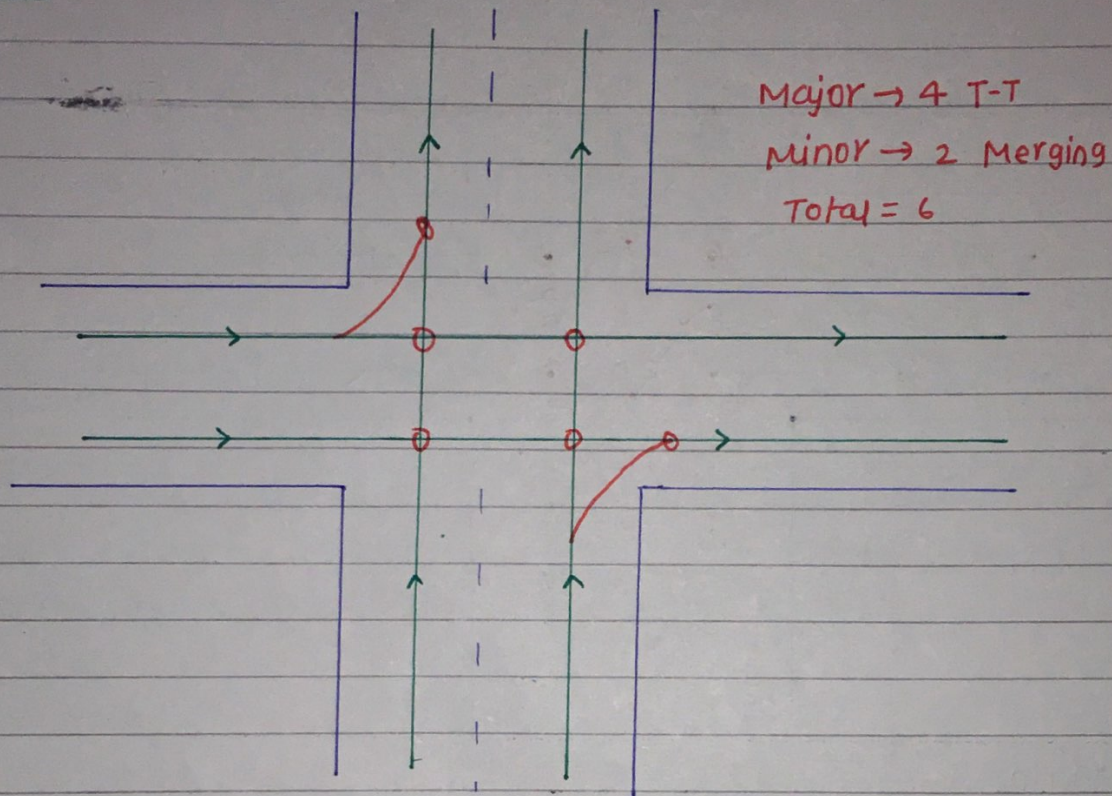 Major → 4 T-T
Minor → 2 Merging
Total = 6